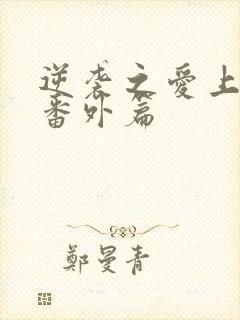 逆袭之愛上
番外篇
鄭曼青